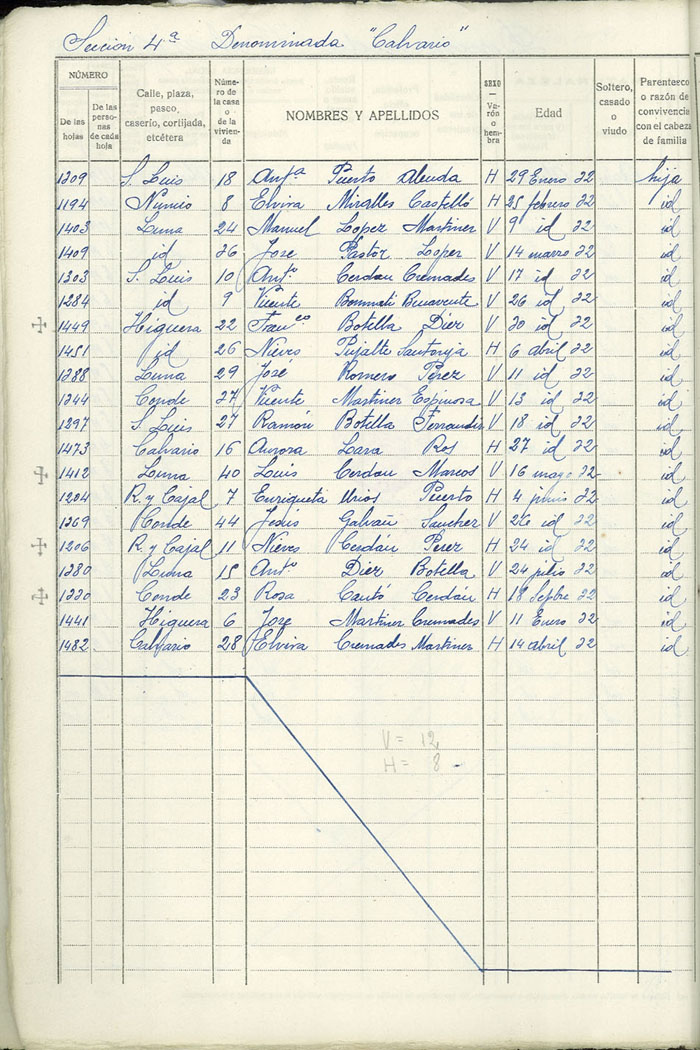 Sección 4ª Denominada "Calvario"
NÚMERO
De las hojas
De las personas de cada hoja
Calle, plaza, paseo, caserío, cortijada, etcétera
Número de la casa o de la vivienda
NOMBRES Y APELLIDOS
SEXO — Varón o hembra
Edad
Soltero, casado o viudo
Parentesco o razón de convivencia con el cabeza de familia
1309 S. Luis 18 Antª Puerto H 29 Enero 32 hija
1194 8 Elvira Miralles Castelló H 25 febrero 32 id
1403 Luna 24 Manuel Lopez Martinez V 9 id 32 id
1409 id 36 Jose Pastor Lopez V 14 marzo 32 id
1303 S. Luis 10 Antº Cerdan Cremades V 17 id 32 id
1284 id 9 Vicente Bonmati Benavente V 26 id 32 id
1449 Higuera 22 Franco Botella Diez V 30 id 32 id
1451 id 26 Nieves Pujalte Santonja H 6 abril 32 id
1388 Luna 29 José Romero Perez V 11 id 32 id
1344 Conde 37 Vicente Martinez Espinosa V 13 id 32 id
1297 S. Luis 27 Ramón Botella Ferrandiz V 18 id 32 id
1473 Calvario 16 Aurora Lara Ros H 27 id 32 id
1412 Luna 40 Luis Cerdan Marcos V 16 mayo 32 id
1204 R. y Cajal 7 Enriqueta Urios Puerto H 4 junio 32 id
1369 Conde 44 Jesús Galvañ Sanchez V 26 id 32 id
1206 R. y Cajal 11 Nieves Cerdán Perez H 24 id 32 id
1380 Luna 15 Antº Diez Botella V 24 julio 32 id
1330 Conde 23 Rosa Cantó Cerdán H 18 Sepbre 32 id
1441 Higuera 6 Jose Martinez Cremades V 11 Enero 32 id
1482 Calvario 28 Elvira Cremades Martinez H 14 abril 32 id
V = 12
H = 8